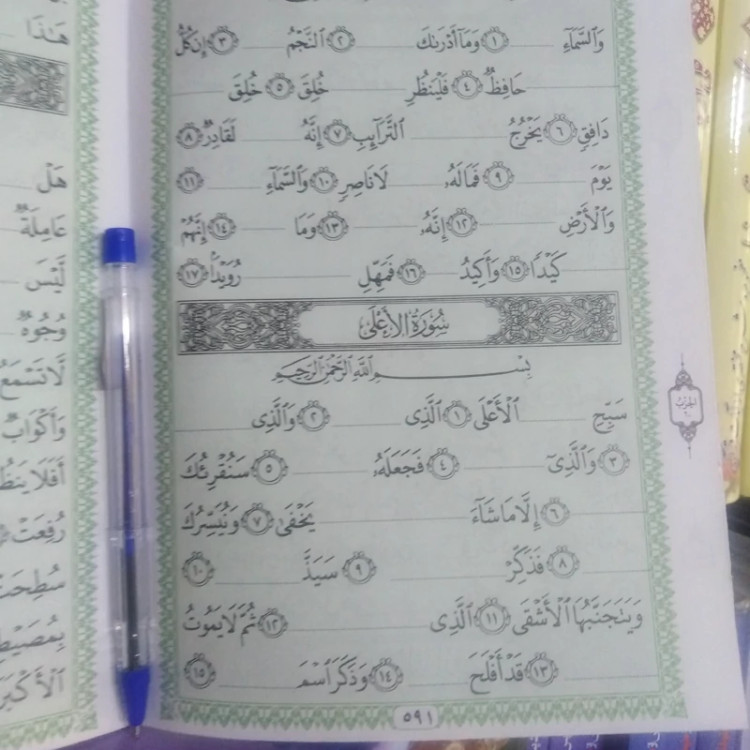 وَٱلسَّمَآءِ ١ وَمَآ أَدْرَىٰكَ ٢ ٱلنَّجْمُ ٣ إِن كُلُّ
حَافِظٌ ٤ فَلْيَنظُرِ خُلِقَ ٥ خُلِقَ
دَافِقٍ ٦ يَخْرُجُ ٱلتَّرَآئِبِ ٧ إِنَّهُۥ لَقَادِرٌ ٨
يَوْمَ ٩ فَمَا لَهُۥ لَا نَاصِرٍ ١٠ وَٱلسَّمَآءِ ١١
وَٱلْأَرْضِ ١٢ إِنَّهُۥ ١٣ وَمَا ١٤ إِنَّهُمْ
كَيْدًا ١٥ وَأَكِيدُ ١٦ فَمَهِّلِ رُوَيْدًۢا ١٧
سُورَةُ الأَعْلَى
بِسْمِ ٱللَّهِ ٱلرَّحْمَٰنِ ٱلرَّحِيمِ
سَبِّحِ ٱلْأَعْلَى ١ ٱلَّذِى ٢ وَٱلَّذِى
٣ وَٱلَّذِىٓ ٤ فَجَعَلَهُۥ ٥ سَنُقْرِئُكَ
٦ إِلَّا مَا شَآءَ يَخْفَىٰ ٧ وَنُيَسِّرُكَ
٨ فَذَكِّرْ ٩ سَيَذَّ ١٠
وَيَتَجَنَّبُهَا ٱلْأَشْقَى ١١ ٱلَّذِى ١٢ ثُمَّ لَا يَمُوتُ
١٣ قَدْ أَفْلَحَ ١٤ وَذَكَرَ ٱسْمَ ١٥
٥٩١
الحزب
٦٠
هَٰذَا
هَلْ
عَامِلَةٌ
لَّيْسَ
وُجُوهٌ
لَّا تَسْمَعُ
وَأَكْوَابٌ
أَفَلَا
رُفِعَتْ
سُطِحَتْ
بِمُصَيْطِ
ٱلْأَكْبَرَ